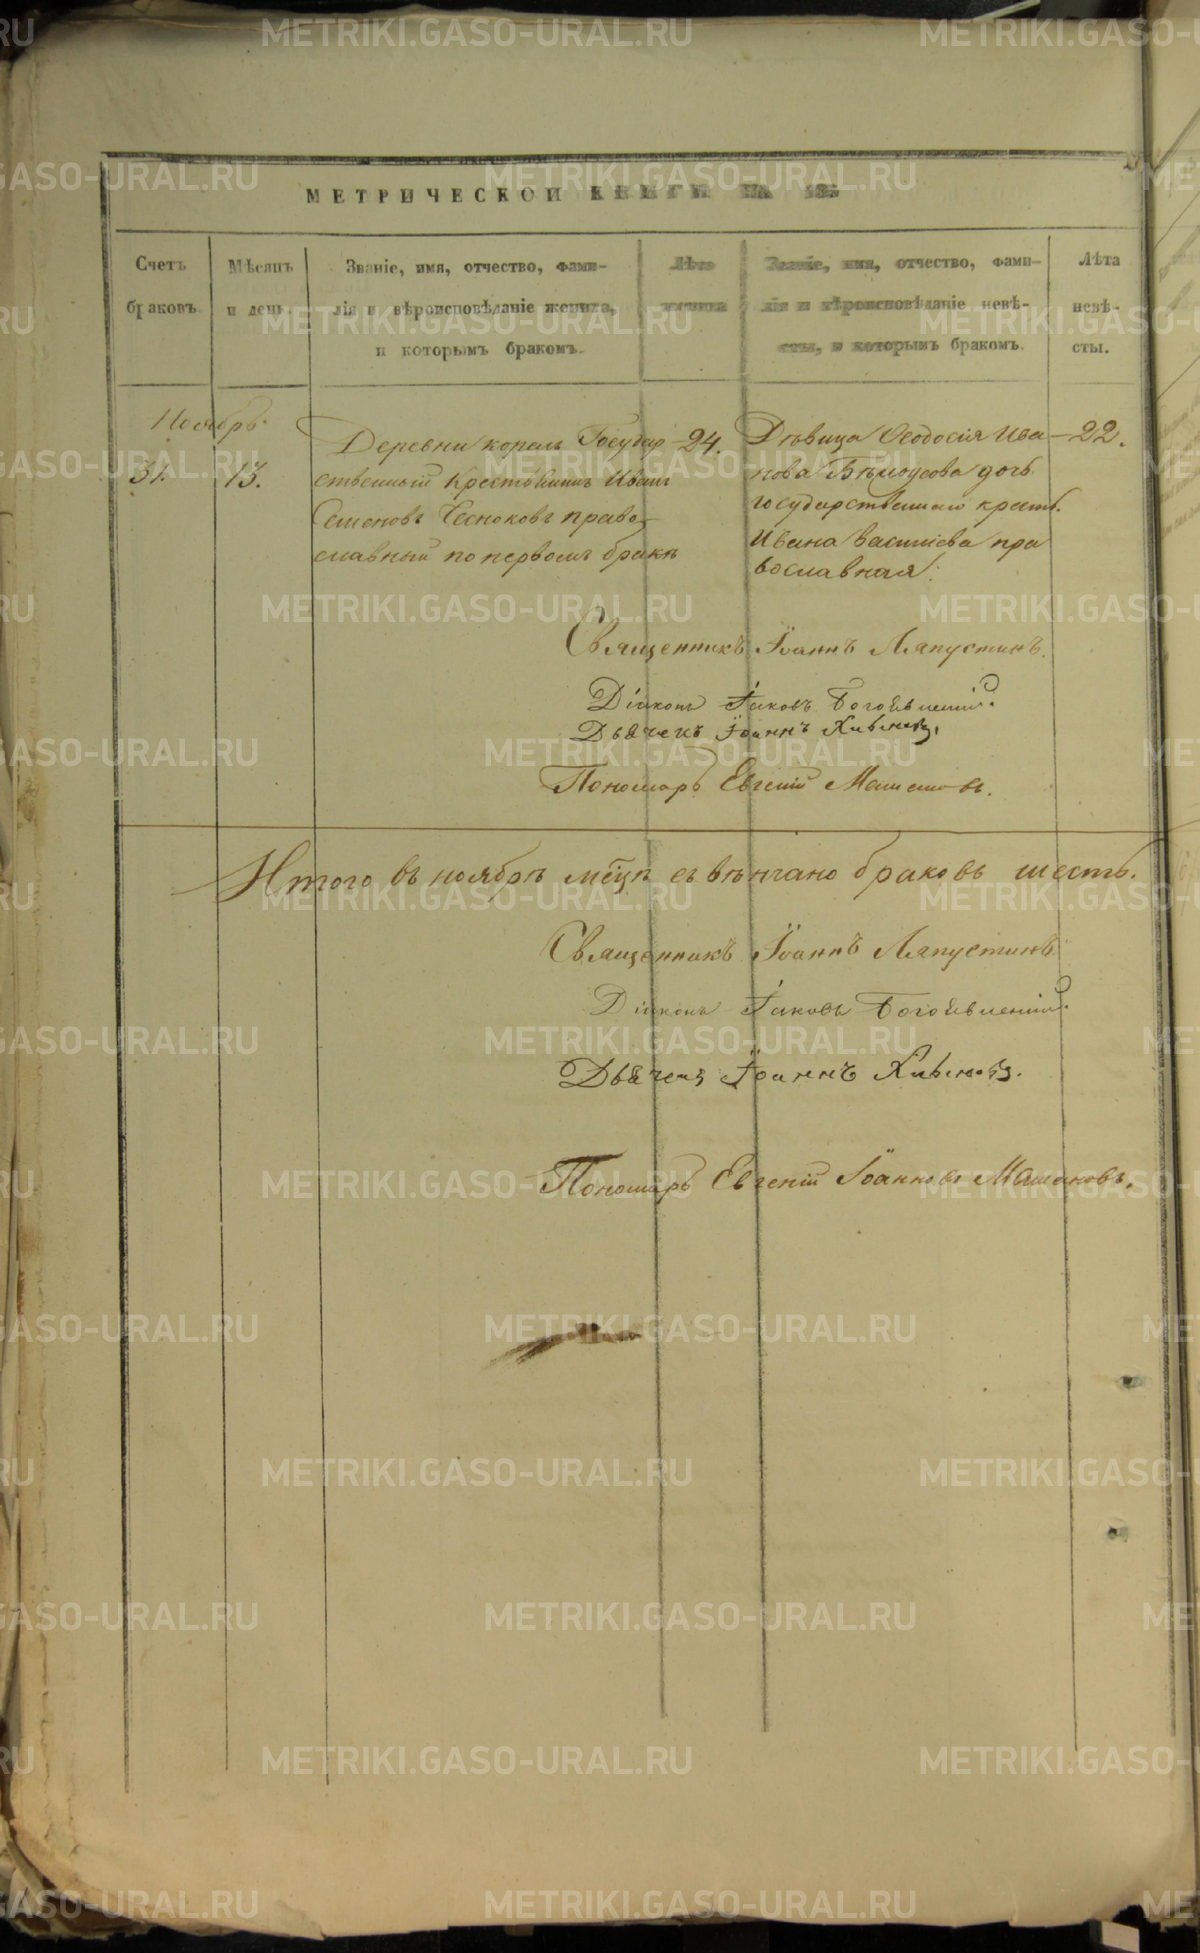 МЕТРИЧЕСКОЙ КНИГИ НА 185
Счетъ браковъ.
Мѣсяцъ и день.
Званіе, имя, отчество, фами-
лія и вѣроисповѣданіе жениха,
и которымъ бракомъ.
Лѣта
жениха
Званіе, имя, отчество, фами-
лія и вѣроисповѣданіе невѣ-
сты, и которымъ бракомъ.
Лѣта
невѣ-
сты.
Ноябрь.
31. 13.
Деревни корелъ Государ
ственный Крестьянинъ Иванъ
Семеновъ Чесноковъ право
славный по первомъ бракѣ
24.
Дѣвица Ѳеодосія Ива
нова Бѣлоусова дочь
государственнаго крест.
Ивана Василіева пра
вославная.
22.
Священникъ Іоаннъ Ляпустинъ.
Діаконъ Іаковъ Богоявленій.
Дьячекъ Іоаннъ
Пономарь Евгеній
Итого въ ноябрѣ мѣцѣ свѣнчано браковъ шесть.
Священникъ Іоаннъ Ляпустинъ
Діаконъ Іаковъ Богоявленій.
Дьячекъ Іоаннъ
Пономарь Евгеній Іоанновъ
METRIKI.GASO-URAL.RU